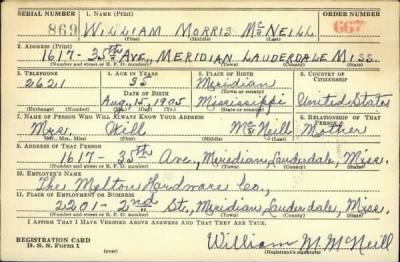 SERIAL NUMBER 1. NAME (Print) ORDER NUMBER
869 WILLIAM MORRIS McNEILL 667
(First) (Middle) (Last)
2. ADDRESS (Print)
1617- 35th AVE., MERIDIAN LAUDERDALE MISS.
(Number and street or R. F. D. number) (Town) (County) (State)
3. TELEPHONE 4. AGE IN YEARS 5. PLACE OF BIRTH 6. COUNTRY OF CITIZENSHIP
2621 35 Meridian
DATE OF BIRTH (Town or county)
Aug, 15, 1905 Mississippi United States
(Exchange) (Number) (Mo.) (Day) (Yr.) (State or country)
7. NAME OF PERSON WHO WILL ALWAYS KNOW YOUR ADDRESS 8. RELATIONSHIP OF THAT PERSON
Mrs. Will McNeill Mother
(Mr., Mrs., Miss) (First) (Middle) (Last)
9. ADDRESS OF THAT PERSON
1617- 35th Ave., Meridian, Lauderdale, Miss.
(Number and street or R. F. D. number) (Town) (County) (State)
10. EMPLOYER'S NAME
The Melton Hardware Co.,
11. PLACE OF EMPLOYMENT OR BUSINESS
2201- 2nd St., Meridian, Lauderdale, Miss.
(Number and street or R. F. D. number) (Town) (County) (State)
I AFFIRM THAT I HAVE VERIFIED ABOVE ANSWERS AND THAT THEY ARE TRUE.
REGISTRATION CARD
D. S. S. Form 1 William M. McNeill
(Registrant's signature)